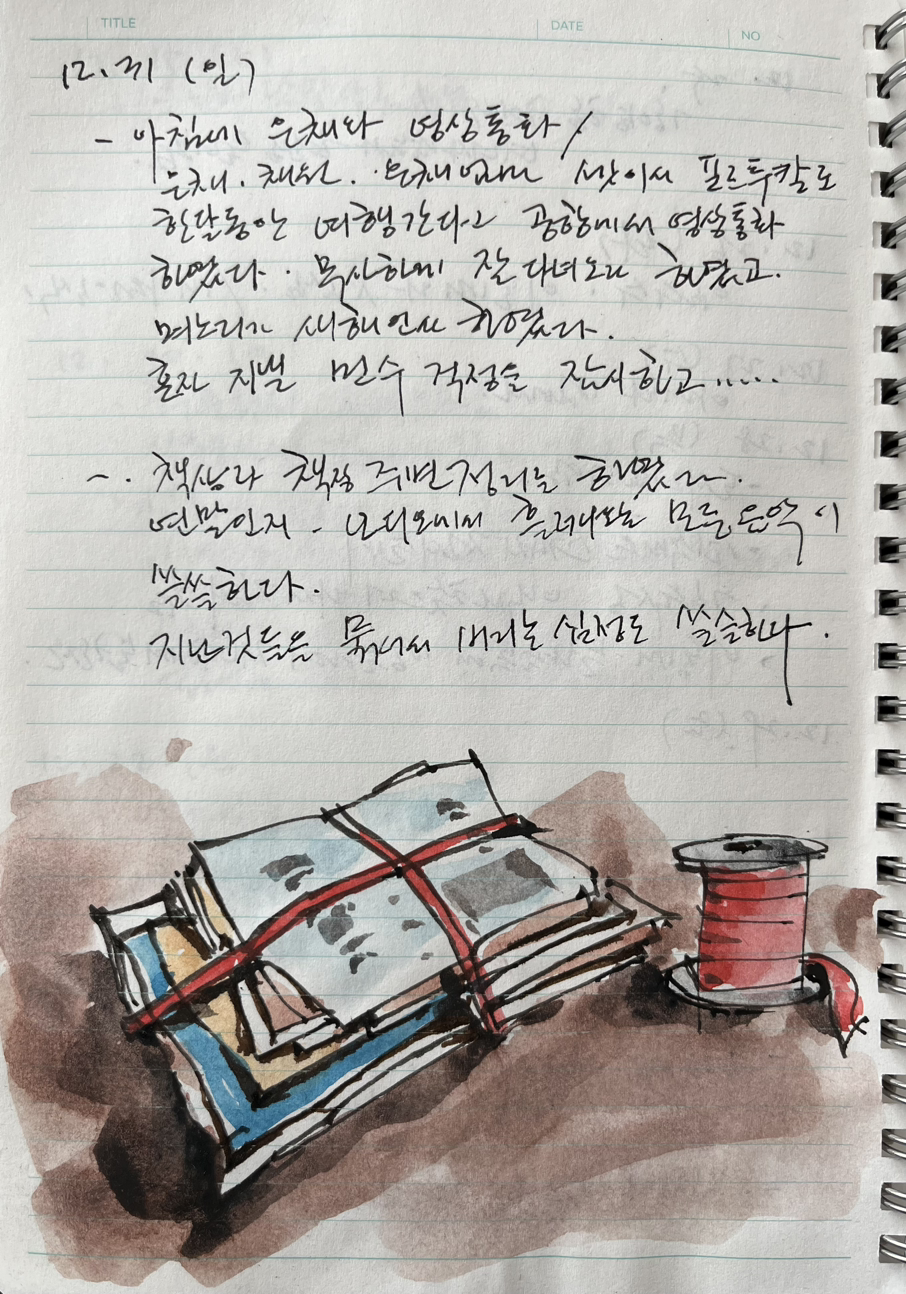 TITLE
DATE
NO
12.31 (일)
- 아침에 은채와 영상통화/
은채. 채원. 은채엄마 셋이서 포르투칼로
한달동안 여행간다고 공항에서 영상통화
하였다. 무사하게 잘 다녀오라 하였고.
며느리가 새해인사 하였다.
혼자 지낼 민수 걱정을 잠시하고.....
-. 책상과 책장 주변정리를 하였다.
연말인지. 라디오에서 흘러나오는 모든 음악이
쓸쓸하다.
지난것들을 묶어서 버리는 심정도 쓸슬하다.